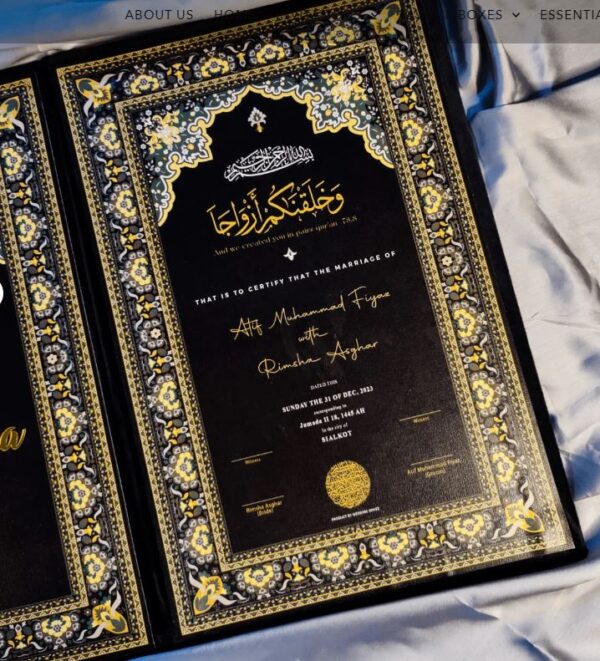 ABOUT US BOXES
بسم الله الرحمن الرحيم
وَخَلَقْنَكُمْ أَزْوَاجًا
And we created you in pairs qur'an 78,8
THAT IS TO CERTIFY THAT THE MARRIAGE OF
Atif Muhammad Fiyaz
with
Rimsha Asghar
DATED THIS
SUNDAY THE 31 OF DEC. 2023
corresponding to
Jumada II 18, 1445 AH
In the city of
SIALKOT
Witness
Witness
Rimsha Asghar
(Bride)
Atif Muhammad Fiyaz
(Groom)
PRODUCT BY